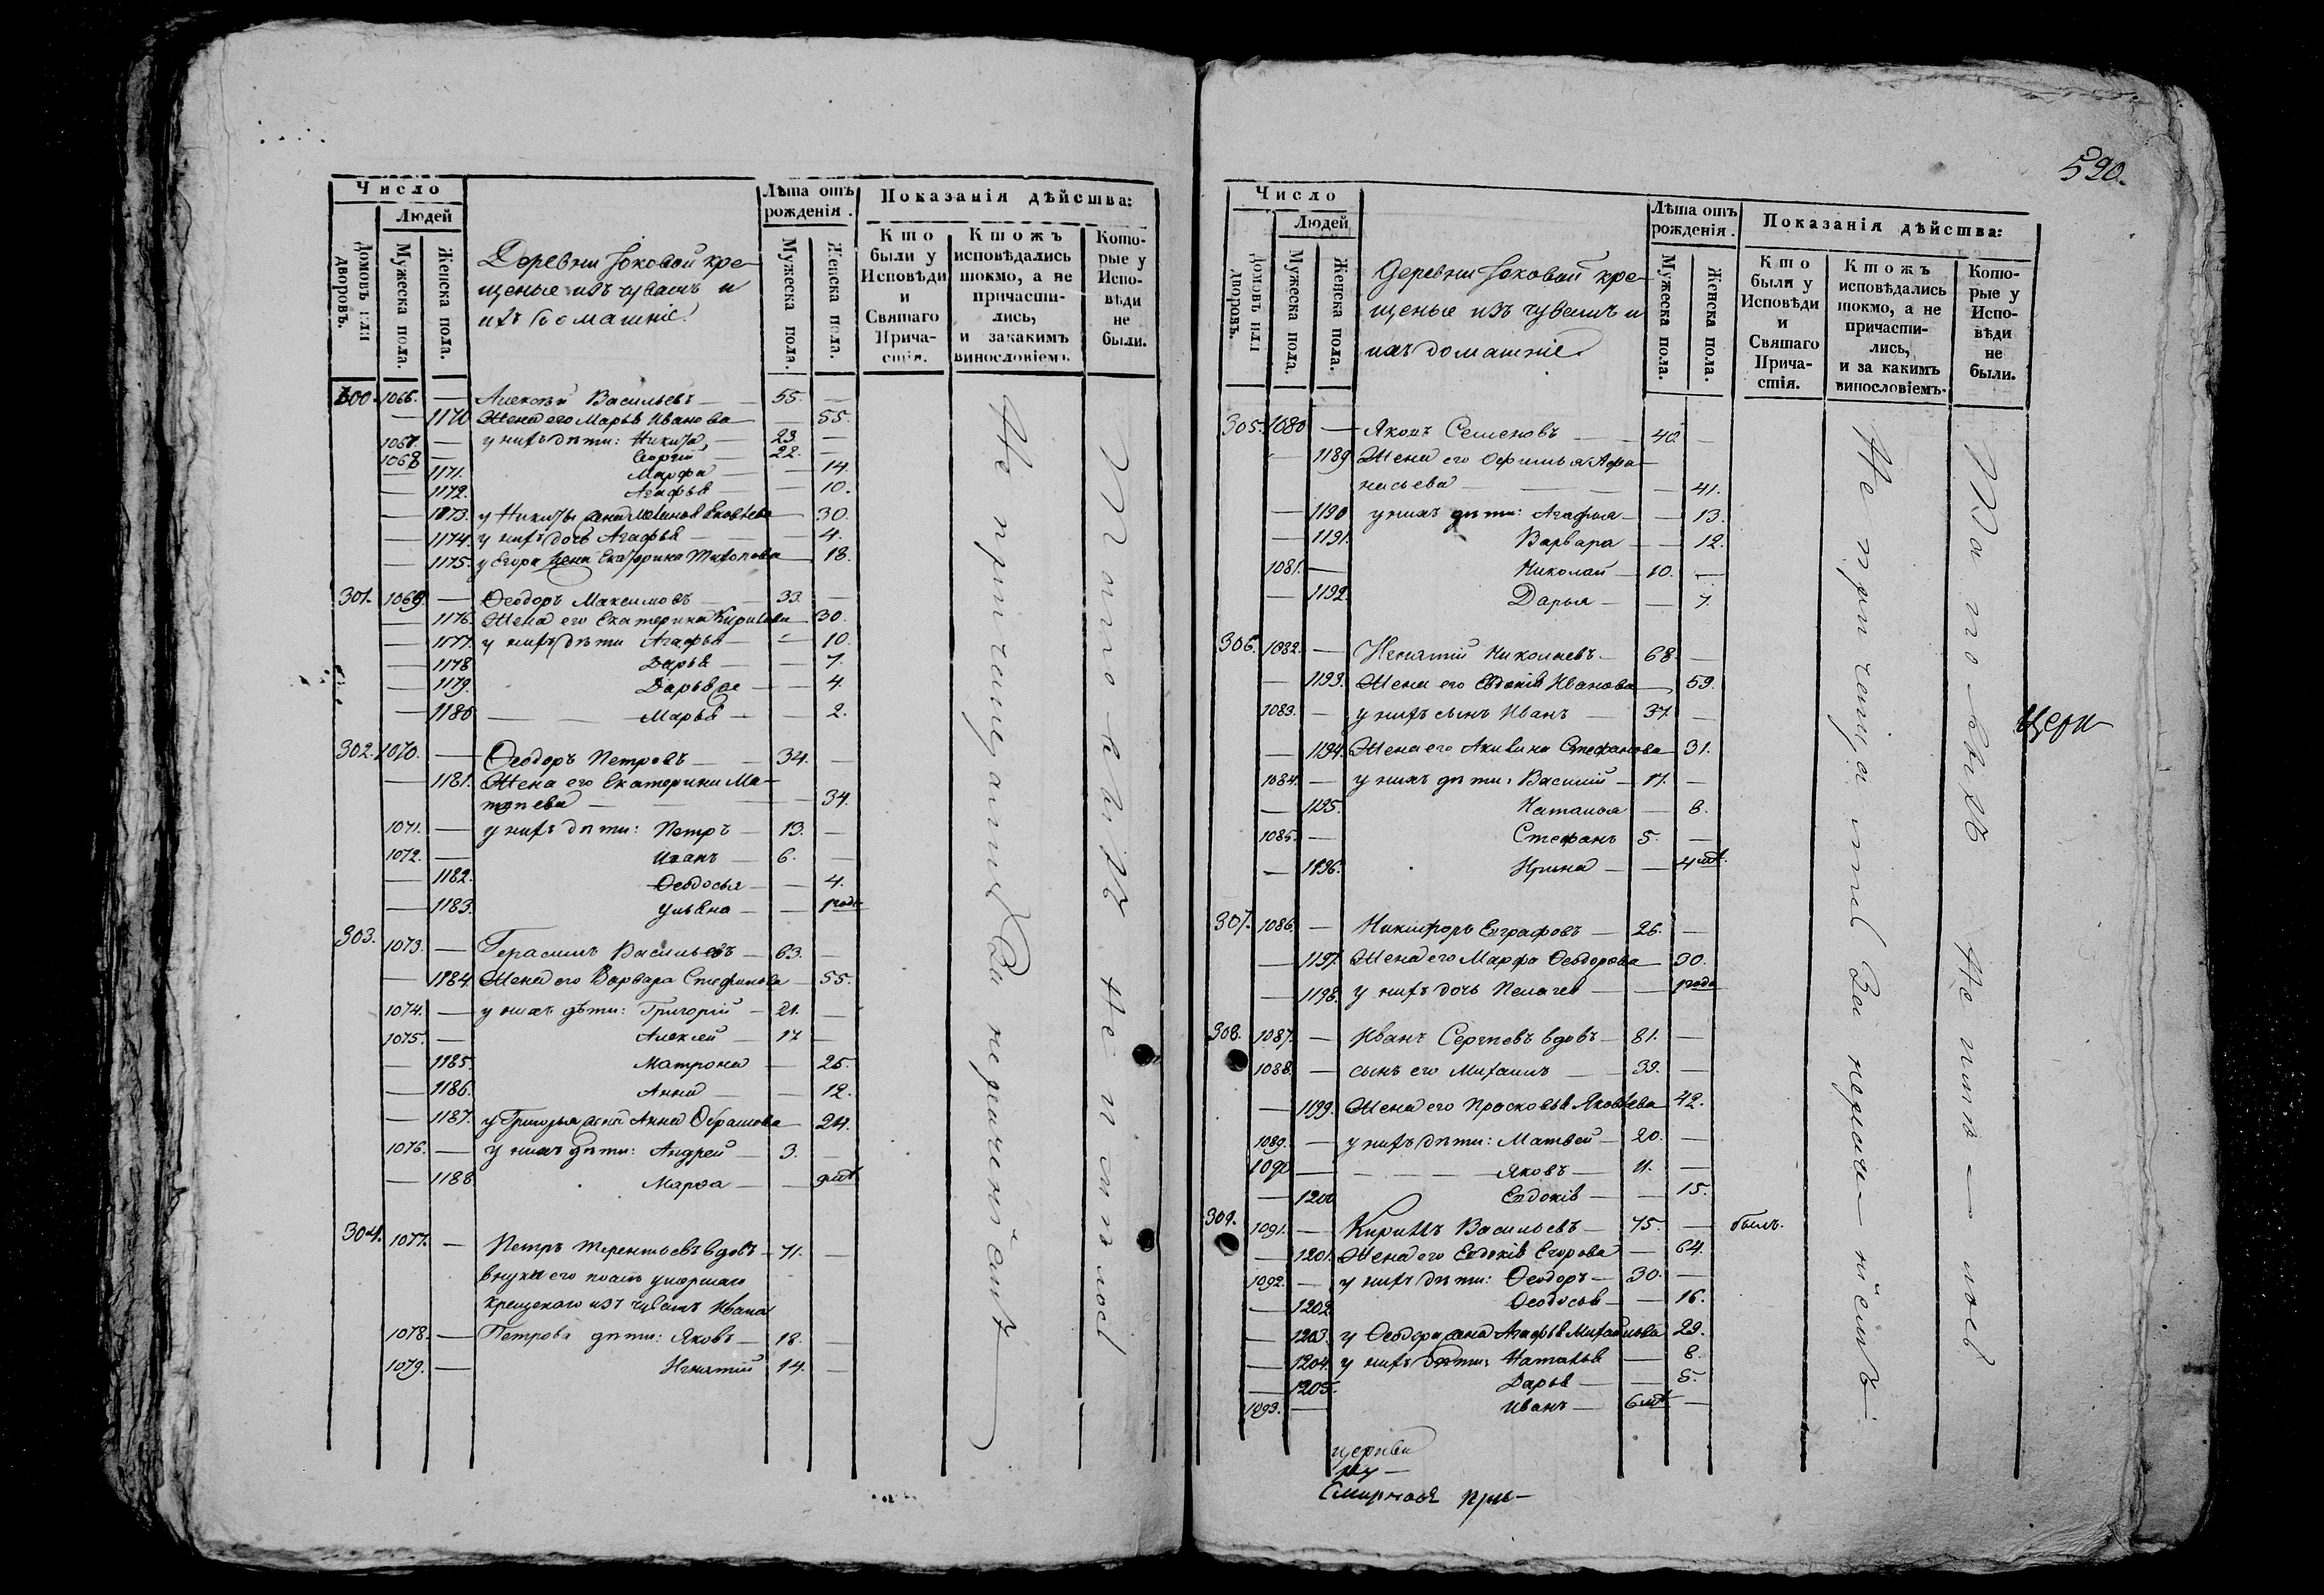 590.
Число
Людей
Домовъ или дворовъ.
Мужеска пола.
Женска пола.
Деревни Токовой кре-
щеные изъ чувашъ и
ихъ домашніе.
Лѣта отъ рожденія.
Мужеска пола.
Женска пола.
Показанія дѣйства:
Кто были у Исповѣди и Святаго Прича-стія.
Ктожъ исповѣдались токмо, а не причасти-лись, и закакимъ винословіемъ.
Кото-рые у Испо-вѣди не были.
300. 1066. — Алексѣй Васильевъ — 55. —
— 1170 Жена его Марья Иванова — 55.
1067. — у нихъ дѣти: Никита, — 23. —
1068 — Георгій — 22. —
— 1171. Марфа — 14.
— 1172. Агафья — 10.
— 1173. у Никиты жена Яковлева — 30.
— 1174. у нихъ дочь Агафья — 4.
— 1175. у Егора жена Екатерина — 18.
301. 1069. — Ѳеодоръ Максимовъ — 33. —
— 1176. Жена его Екатерина Кирилова — 30.
— 1177. у нихъ дѣти Агафья — 10.
— 1178 Дарья — 7.
— 1179. Дарья же — 4.
— 1180 — Марья — 2.
302. 1070. — Ѳеодоръ Петровъ — 34. —
— 1181. Жена его Екатерина Ма-
тѳѣева — 34.
1071. — у нихъ дѣти: Петръ — 13. —
1072. — Иванъ — 6. —
— 1182. Ѳеодосья — 4.
— 1183. Ульяна — 1 годъ
303. 1073. — Герасимъ Васильевъ — 63. —
— 1184 Жена его Варвара Стефанова — 55.
1074. — у нихъ дѣти: Григорій — 21. —
1075. — Алексѣй — 17 —
— 1185. Матрона — 25.
— 1186. Анна — 12.
— 1187. у Григорья жена Анна — 24.
1076. — у нихъ дѣти: Андрей — 3. —
— 1188 Марфа —
304. 1077. — Петръ Терентьевъ вдовъ — 71. —
внуки его
крещенаго изъ чувашъ Ивана
1078. — Петрова дѣти: Яковъ — 18. —
1079. — Игнатій 14. —
Не
не
Число
Людей
Домовъ или дворовъ.
Мужеска пола.
Женска пола.
Деревни Токовой кре-
щеные изъ чувашъ и
ихъ домашніе.
Лѣта отъ рожденія.
Мужеска пола.
Женска пола.
Показанія дѣйства:
Кто были у Исповѣди и Святаго Прича-стія.
Ктожъ исповѣдались токмо, а не причасти-лись, и за какимъ винословіемъ.
Кото-рые у Испо-вѣди не были.
305. 1080 — Якимъ Семеновъ — 40 —
— 1189 Жена его Афа-
насьева — 41.
— 1190 у нихъ дѣти: Агафья — 13.
— 1191. Варвара — 12.
1081. — Николай — 10. —
— 1192. Дарья — 7.
306. 1082. — Игнатій Николаевъ — 68. —
— 1193. Жена его Евдокія Иванова — 59.
1083. — у нихъ сынъ Иванъ — 37. —
— 1194. Жена его Акилина Стефанова — 31.
1084. — у нихъ дѣти: Василій — 11. —
— 1195. Наталья — 8.
1085. — Стефанъ 5. —
— 1196. Ирина —
307. 1086. — Никифоръ Евграфовъ — 26. —
— 1197. Жена его Марфа Ѳеодорова — 30.
— 1198. у нихъ дочь Пелагея — 1 годъ
308. 1087. — Иванъ Сергѣевъ вдовъ — 81. —
1088. — сынъ его Михаилъ — 39. —
— 1199. Жена его Прасковья Яковлева — 42.
1089. — у нихъ дѣти: Матвей — 20. —
1090 — Яковъ — 11. —
— 1200 Евдокія — 15.
309. 1091. — Кирилъ Васильевъ — 75. — былъ.
— 1201. Жена его Евдокія Егорова — 64.
1092. — у нихъ дѣти: Ѳеодоръ — 30. —
— 1202. Ѳеодосья — 16.
— 1203. у Ѳеодора жена Агафья Михайлова 29.
— 1204. у нихъ дѣти: Наталья — 8.
— 1205. Дарья — 5.
1093. — Иванъ —
Не
По
не
Церк
церкви